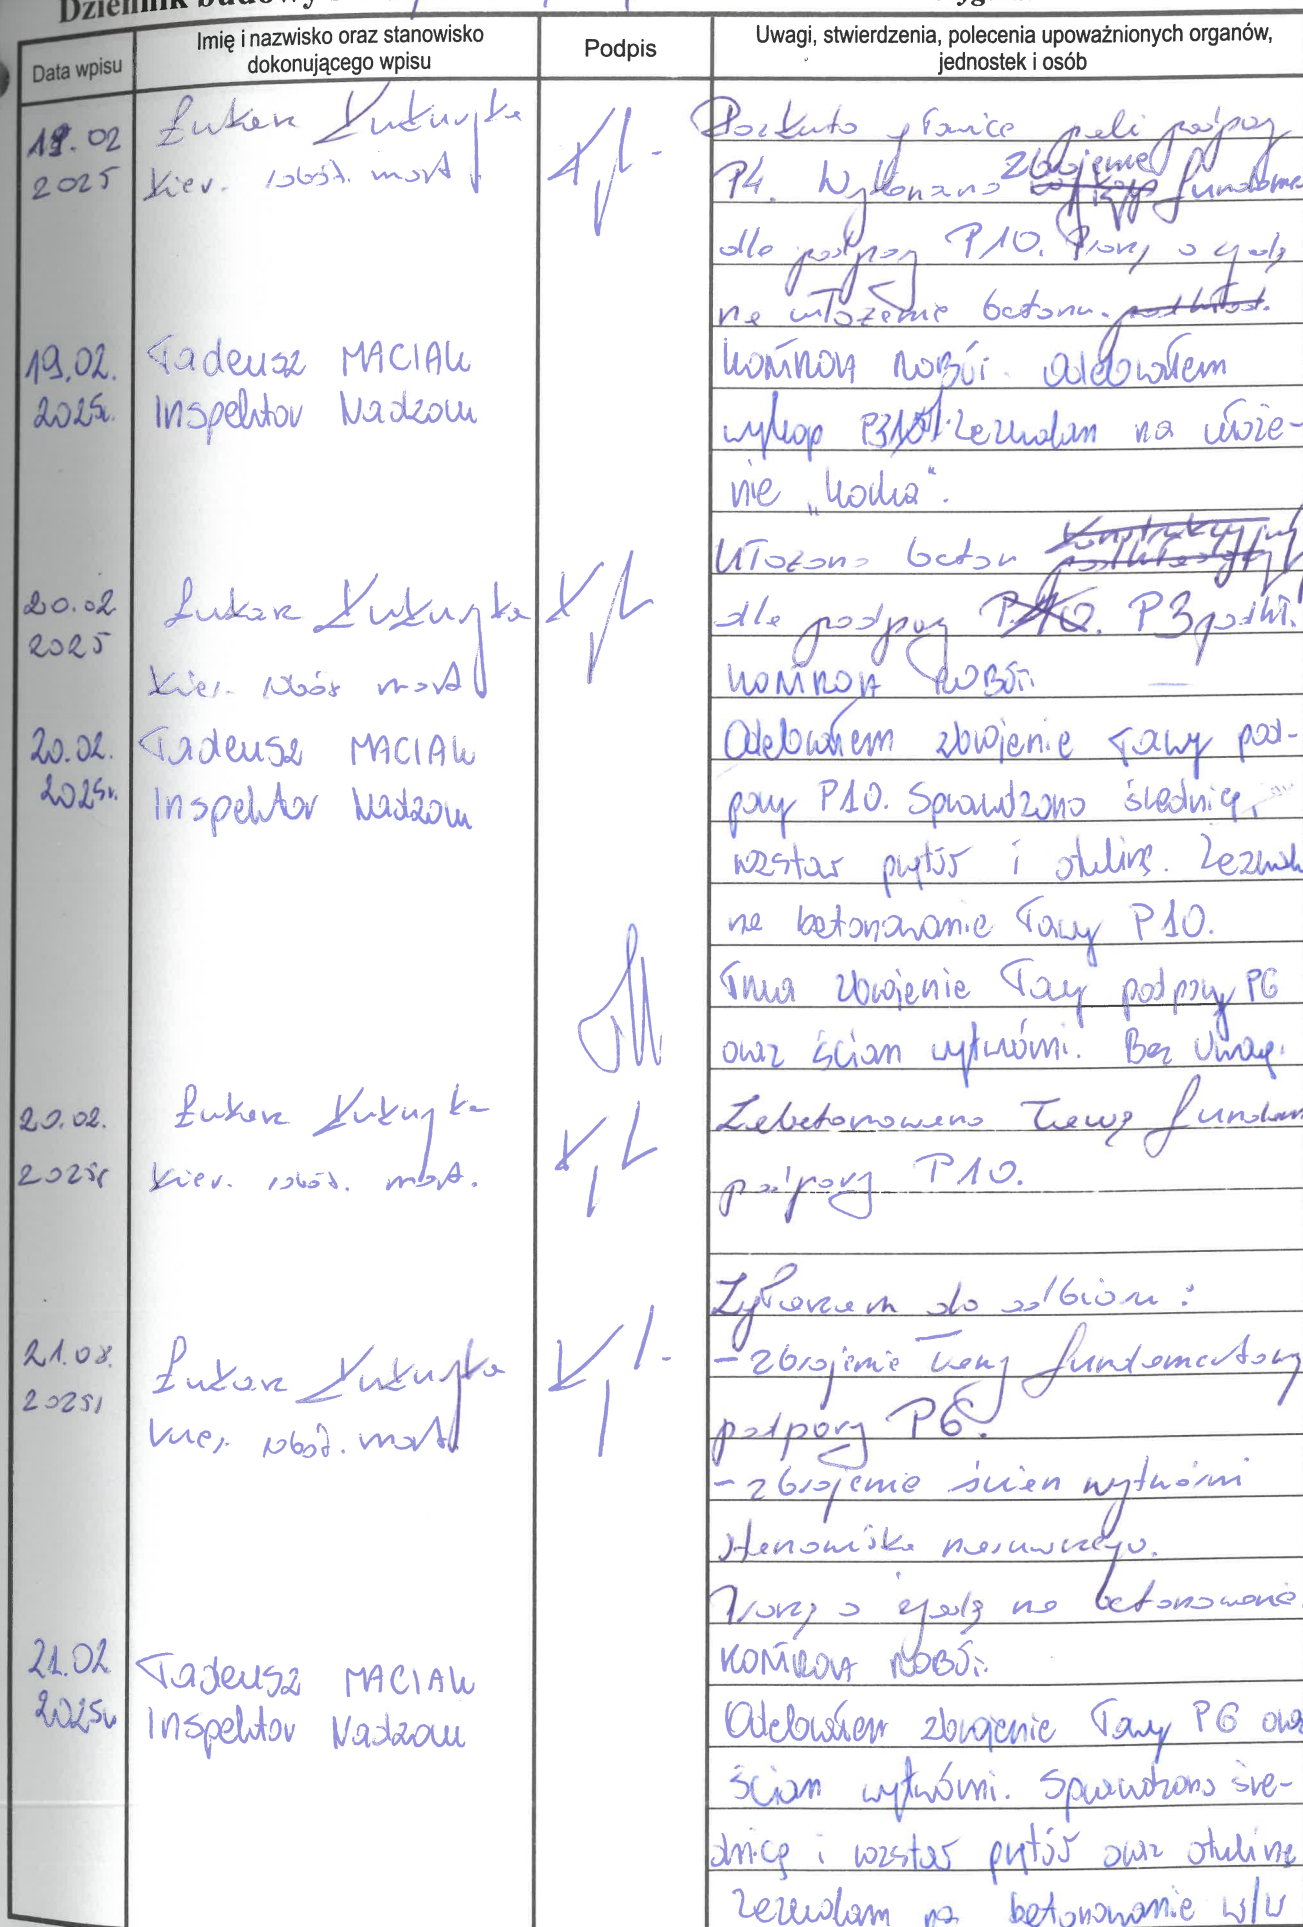 Dziennik budowy
Data wpisu
Imię i nazwisko oraz stanowisko
dokonującego wpisu
Podpis
Uwagi, stwierdzenia, polecenia upoważnionych organów,
jednostek i osób
19.02
2025
Łukasz
Kier. robót. most
pali podpory
P4. Wykonano zbrojenie fundame
dla podpory P10. Proszę o zgodę
na ułożenie betonu.
19.02.
2025r.
Tadeusz MACIAK
Inspektor Nadzoru
KONTROLA ROBÓT. Odebrałem
wykop Zezwalam na ułoże-
nie „korka".
20.02
2025
Łukasz
Kier. robót most
Ułożono beton
dla podpory P3 podkł.
KONTROLA ROBÓT.
20.02.
2025r.
Tadeusz MACIAK
Inspektor Nadzoru
Odebrałem zbrojenie ławy pod-
pory P10. Sprawdzono średnicę,
rozstaw prętów i otulinę. Zezwal
na betonowanie ławy P10.
Trwa zbrojenie ławy podpory P6
oraz ścian wytwórni. Bez uwag.
20.02.
2025r
Łukasz
Kier. robót. most.
Zabetonowano ławę fundam
podpory P10.
21.02.
2025r
Łukasz
Kier. robót. most.
Zgłaszam do odbioru:
- zbrojenie ławy fundamentowy
podpory P6.
- zbrojenie ścian wytwórni
stanowiska nasuwczego.
Proszę o zgodę na betonowanie.
21.02
2025r
Tadeusz MACIAK
Inspektor Nadzoru
KONTROLA ROBÓT.
Odebrałem zbrojenie ławy P6 oraz
ścian wytwórni. Sprawdzono śre-
dnicę i rozstaw prętów oraz otulinę
Zezwalam na betonowanie w/w